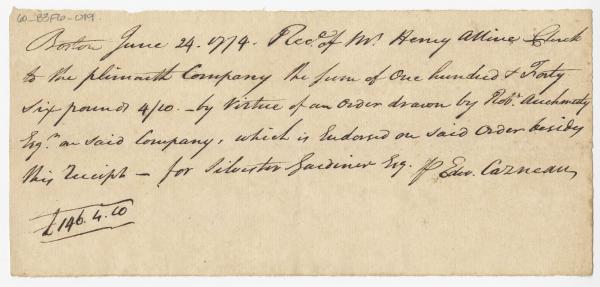 60-B3F6-019
Boston June 24. 1774. Rec.d of Mr. Henry Alline Clerk
to the plimouth Company the sum of One hundred & Forty
Six pounds 4/10. - by Virtue of an order drawn by Rob.t Auchmuty
Esq.r on said Company, which is Endorsed on said Order besides
this receipt - for Silvester Gardiner Esq. Edw. Carneau
£146.4.10